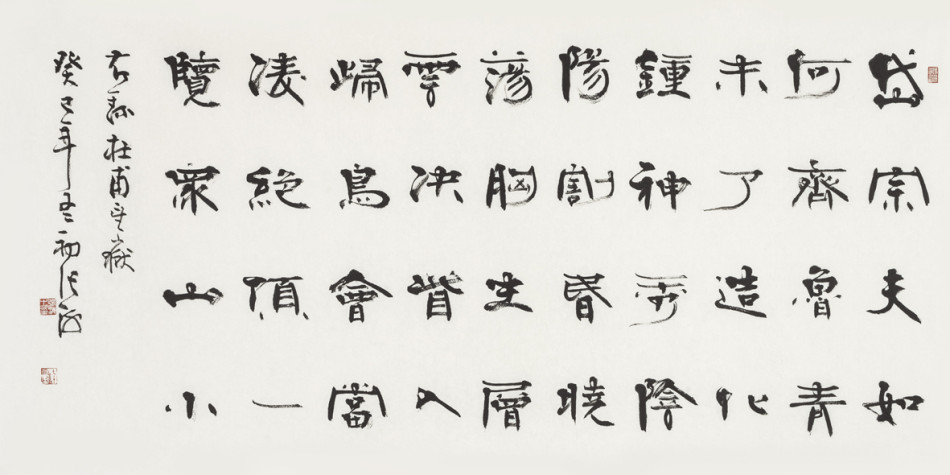 岱宗夫如
何齊魯青
未了造化
鍾神秀陰
陽割昏曉
蕩胸生層
雲決眥入
歸鳥會當
凌絕頂一
覽眾山小
右錄杜甫望嶽
癸巳年冬初